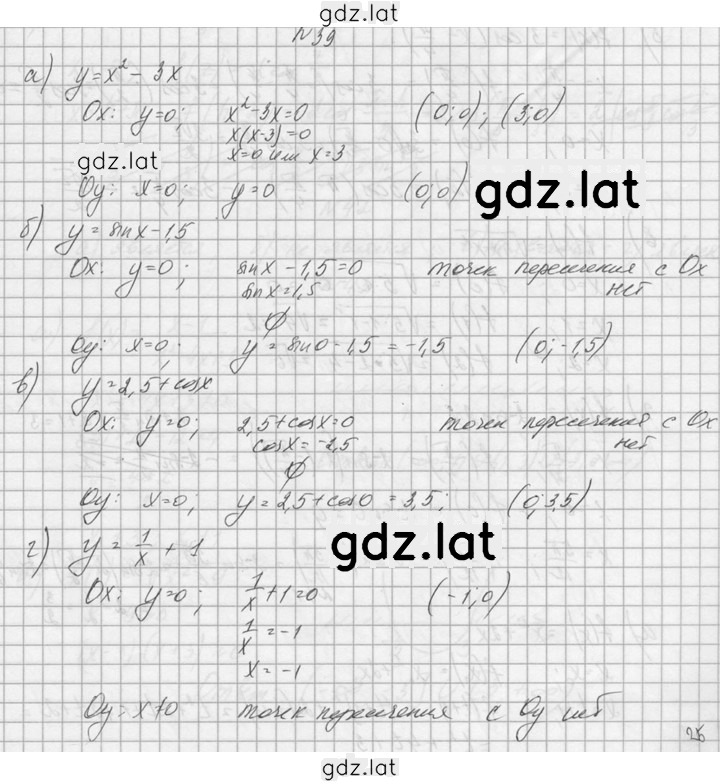 gdz.lat
№39
а) y=x²-3x
Ox: y=0; x²-3x=0 (0;0); (3;0)
x(x-3)=0
gdz.lat
x=0 или x=3
Oy: x=0; y=0 (0;0)
gdz.lat
б) y=sinx-1,5
Ox: y=0; sinx-1,5=0 точек пересечения с Ox
sinx=1,5 нет
∅
Oy: x=0; y=sin0-1,5=-1,5 (0;-1,5)
в) y=2,5+cosx
Ox: y=0; 2,5+cosx=0 точек пересечения с Ox
cosx=-2,5 нет
∅
Oy: x=0; y=2,5+cos0=3,5; (0;3,5)
gdz.lat
г) y=1/x+1
Ox: y=0; 1/x+1=0 (-1;0)
1/x=-1
x=-1
Oy: x≠0 точек пересечения с Oy нет
gdz.lat